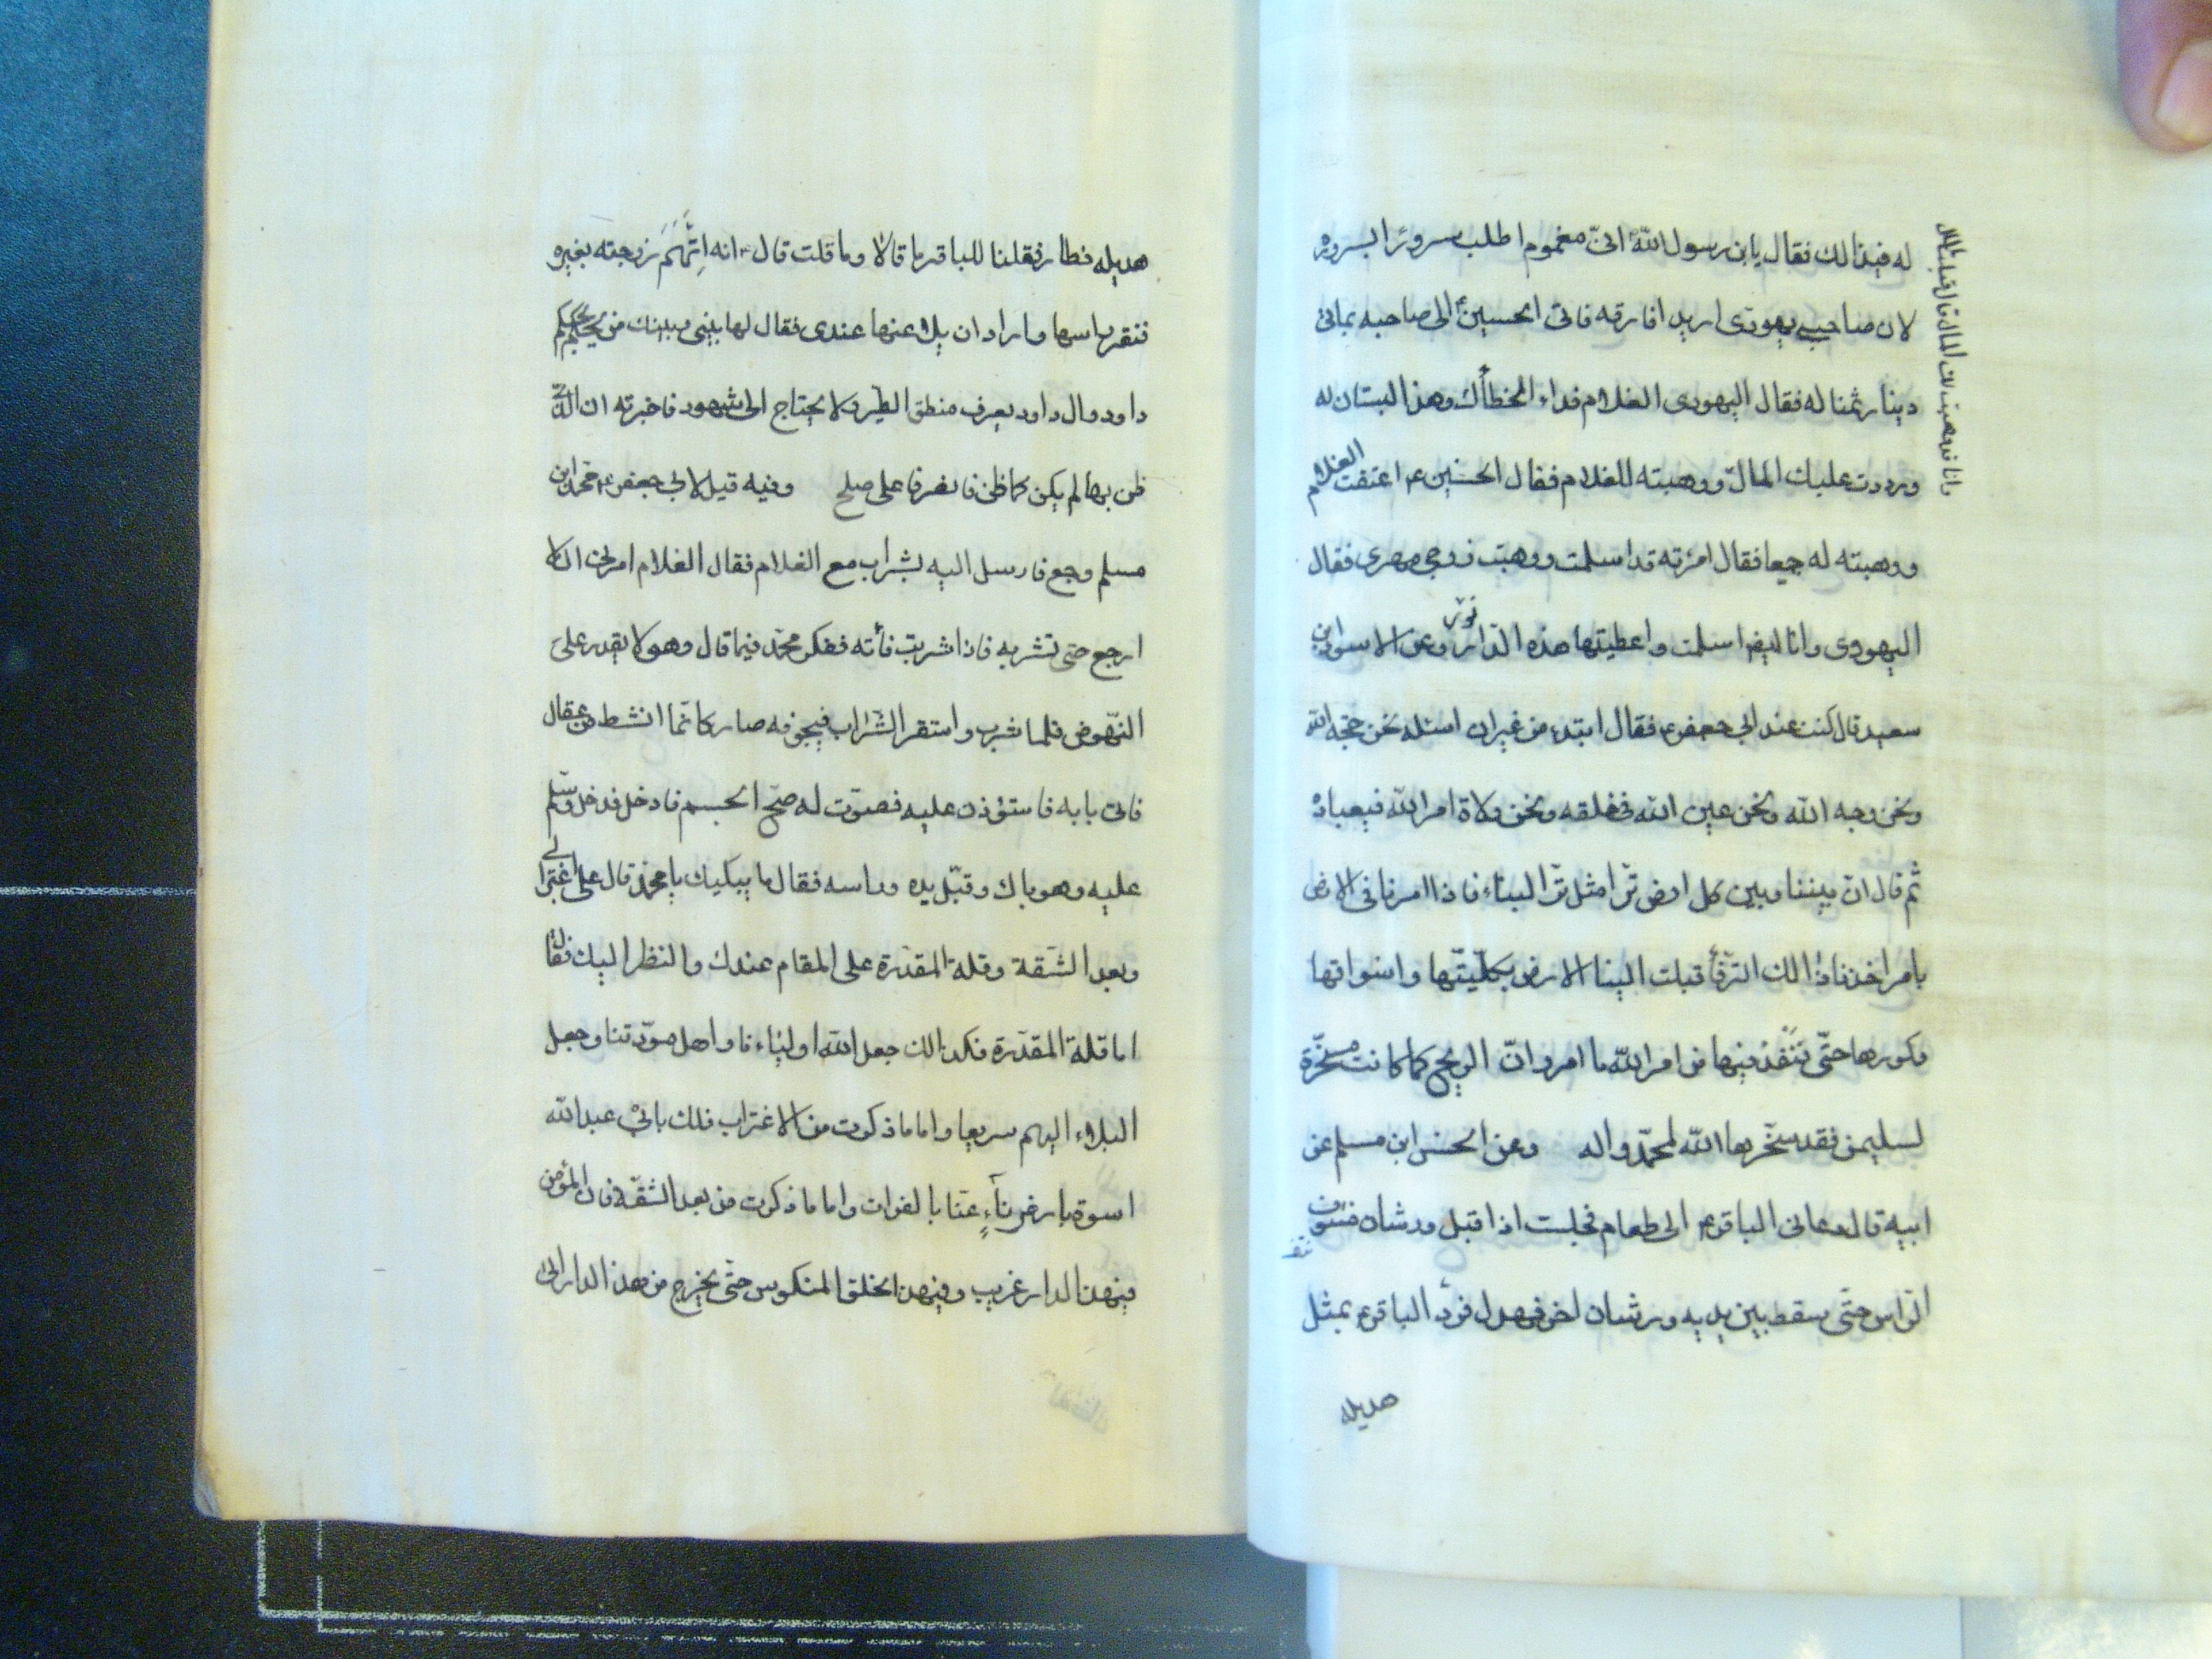 له فيذالك فقال يابن رسول الله انى مغموم اطلب سرورًا بسروره
لان صاحبى يهودى اريد افارقه فاتى الحسين الى صاحبه بماتى
دينار ثمنا له فقال اليهودى الغلام فداء لخطأك وهذا البستان له
ورددت عليك المال ووهبته للغلام فقال الحسين ع اعتقت الغلام
ووهبته له جميعا فقال امرئته قد اسلمت ووهبت زوجى مهرى فقال
اليهودى وانا ايضا اسلمت واعطيتها هذه الدار وعن الاسود ابن
سعيد قال كنت عند ابى جعفر ع فقال ابتداء من غير ان اسئله نحن حجة الله
ونحن وجه الله ونحن عين الله فى خلقه ونحن ولاة امر الله فيعباده
ثم قال ان بيننا وبين كل ارض ترا مثل تر البناء فاذا امرنا فى الارض
بامر اخذنا ذالك التر فأقبلت الينا الارض بكليتها واسواقها
وكورها حتى تنفذ فيها من امر الله ما امر وان الريح كما كانت مسخرة
لسليمن فقد سخرها الله لمحمد واله وعن الحسن ابن مسلم عن
ابيه قال دعانى الباقر ع الى طعام فجلست اذا اقبل ورشان منتوف
الراس حتى سقط بين يديه ورشان اخر فهدل فرد الباقر ع بمثل
هديله
وانا قد وهبت لك المال قال قبلت المال
هديله فطار فقلنا للباقر ما قالا وما قلت قال ع انه اتهم زوجته بغيره
فنقر راسها واراد ان يلاعنها عندى فقال لها بينى وبينك من يحكم بحكم
داود وال داود يعرف منطق الطير ولا يحتاج الى شهود فاخبرته ان الذى
ظن بها لم يكن كما ظن فانصرفا على صلح وفيه قيل لابى جعفر ع محمد ابن
مسلم وجع فارسل اليه بشراب مع الغلام فقال الغلام امرنى ان لا
ارجع حتى تشربه فاذا شربت فأته ففكر محمد فيما قال وهو لا يقدر على
النهوض فلما شرب واستقر الشراب فيجوفه صار كانما انشط من عقال
فاتى بابه فاستؤذن عليه فصوت له صح الجسم فادخل فدخل وسلم
عليه وهو باك وقبل يده وراسه فقال ما يبكيك يا محمد قال على اغترابى
وبعد الشقة وقلة المقدرة على المقام عندك والنظر اليك فقال
اما قلة المقدرة فكذالك جعل الله اولياءنا واهل مودتنا وجعل
البلاء اليهم سريعا واما ما ذكرت من الاغتراب فلك بابى عبدالله
اسوة بارض ناءٍ عنا بالفرات واما ما ذكرت من بعد الشقة فان المؤمن
فيهذا لدار غريب وفيهذا الخلق المنكوس حتى يخرج من هذا الدار الى